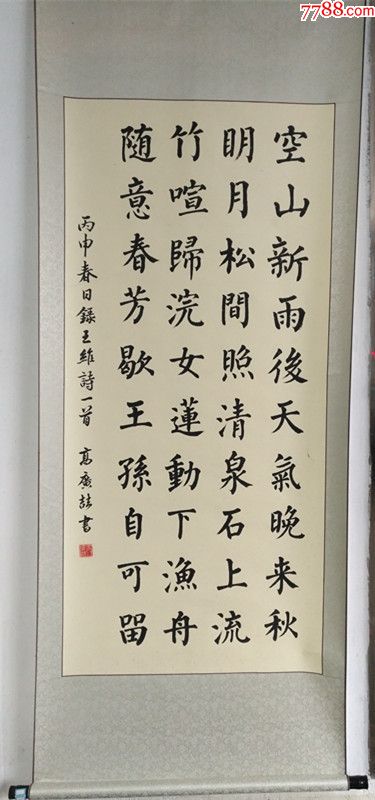 7788.com
空山新雨後天氣晚来秋
明月松間照清泉石上流
竹喧歸浣女蓮動下漁舟
随意春芳歇王孫自可留
丙申春日録王維詩一首 高廣 書